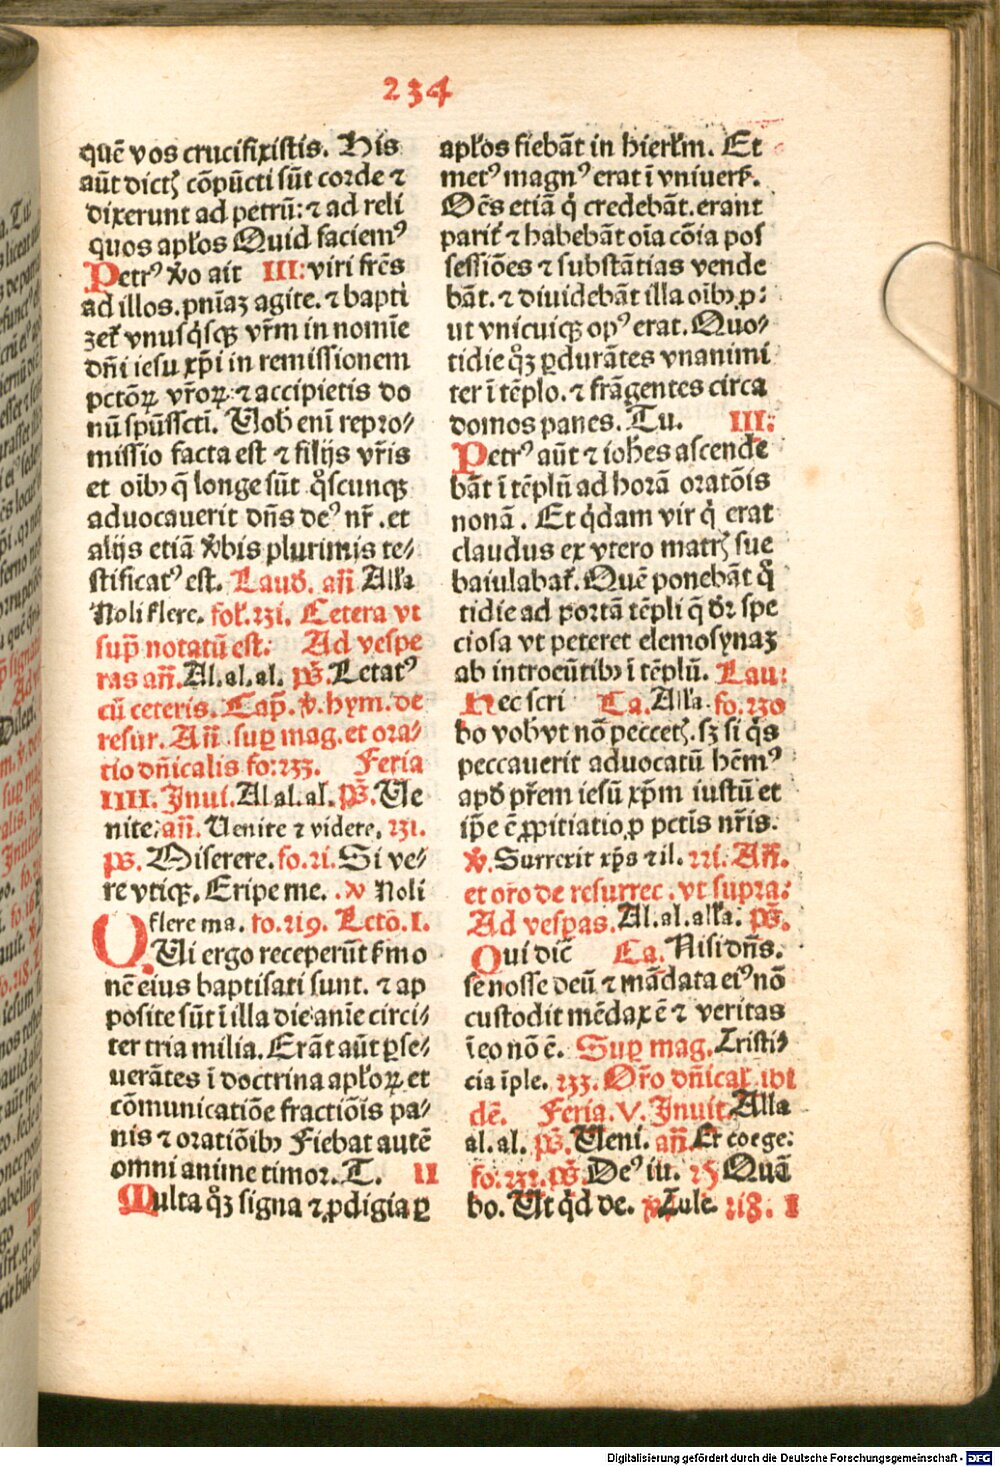 234
quē vos crucifixistis. His
aūt dictꝫ cōpūcti sūt corde ⁊
dixerunt ad petrū: ⁊ ad reli
quos apłos Quid faciemꝰ
Petrꝰ v̊o ait III: viri frēs
ad illos. pnīaꝫ agite. ⁊ bapti
zeť vnusq̇sqꝫ vr̄m in nomīe
dn̄i iesu xp̄i in remissionem
pctōꝝ vr̄oꝝ ⁊ accipietis do
nū spūsscti. Vob̄ enī repro⸗
missio facta est ⁊ filijs vr̄is
et oīb⁹ q̄ longe sūt q̊scunqꝫ
aduocauerit dn̄s deꝰ nr̄. et
alijs etiā v̊bis plurimis te⸗
stificatꝰ est. Laud. an̄ Alľa
Noli flere. foł. 231. Cetera vt
sup̄ notatū est: Ad vespe
ras an̄. Al. al. al. ps̄. Letatꝰ
cū ceteris. Cap̄. v̊. hym. de
resur. An̄ sup̱ mag. et ora⸗
tio dn̄icalis fo: 233. Feria
IIII. Inui. Al al. al. Ps̄. Ve
nite: an̄. Uenite ⁊ videte, 231.
ps. Miserere. fo. 21. Si ve⸗
re vtiqꝫ. Eripe me. v̊ Noli
flere ma. fo. 219. Lectō. I.
QVi ergo receperūt s̄mo
nē eius baptisati sunt. ⁊ ap
posite sūt ī illa die anīe circi⸗
ter tria milia. Erāt aūt ꝑse⸗
uerātes ī doctrina apłoꝝ et
cōmunicatiōe fractiōis pa⸗
nis ⁊ oratiōib⁹ Fiebat autē
omni anime timor. T. II
Multa q̊ꝫ signa ⁊ ꝓdigia ꝑ
apłos fiebāt in hierłm. Et
metꝰ magnꝰ erat ī vniuers̄.
Oēs etiā q̇ credebāt. erant
pariť ⁊ habebāt oīa cōia pos
sessiōes ⁊ substātias vende
bāt. ⁊ diuidebāt illa oīb⁹ ꝓ:
ut vnicuiqꝫ opꝰ erat. Quo⸗
tidie q̊ꝫ ꝑdurātes vnanimi
ter ī tēplo. ⁊ frāgentes circa
domos panes. Tu. III:
Petrꝰ aūt ⁊ ioh̄es ascende
bāt ī tēplū ad horā oratōis
nonā. Et q̇dam vir q̇ erat
claudus ex vtero matrꝫ sue
baiulabať. Quē ponebāt q̊
tidie ad portā tēpli q̄ dr̄ spe
ciosa vt peteret elemosynaꝫ
ab introeūtib⁹ ī tēplū. Lau:
Hec scri Ca. Alľa. fo. 230
bo vob̄ vt nō peccetꝫ. sꝫ si q̇s
peccauerit aduocatū hēmꝰ
apd̄ pr̄em iesū xp̄m iustū et
ip̄e ē ꝓpitiatio ꝓ pctīs nr̄is.
v̊. Surrexit xp̄s ⁊ il. 221. An̄.
et or̄o de resurrec. vt supra:
Ad vesp̄as. Al. al. alľa. ps̄.
Qui dic̄ Ca. Nisi dn̄s.
se nosse deū ⁊ mādata eiꝰ nō
custodit mēdax ē ⁊ veritas
ī eo nō ē. Sup̱ mag. Tristi⸗
cia īple. 233. Or̄o dn̄icał ibi
dē. Feria. V. Inuit. Alla
al. al. ps̄. Veni. an̄. Et coege:
fo. 231. ps̄. Deꝰ iu. 25 Quā
bo. Ut q̇d de. v̊. Tule. 218. I
Digitalisierung gefördert durch die Deutsche Forschungsgemeinschaft - DFG